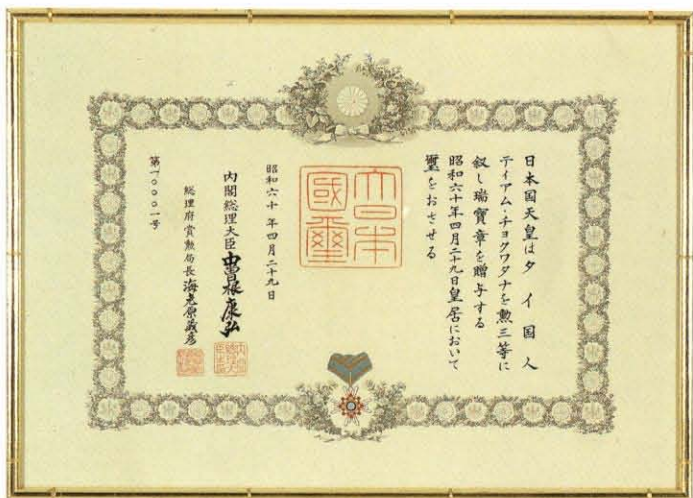 日本国天皇はタイ国人
ティアム・チョクワタナを勲三等に
叙し瑞寶章を贈与する
昭和六十年四月二十九日皇居において
璽をおさせる
大日本
國璽
昭和六十年四月二十九日
内閣総理大臣 中曽根康弘
総理府賞勲局長 海老原義彦
第一〇〇〇一号